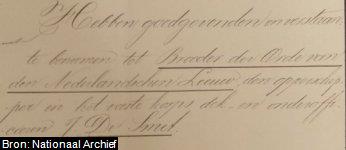 Hebben goedgevonden en verstaan
te benoemen tot Broeder der Orde van
den Nederlandschen Leeuw, den opperschip-
per in het vaste korps dek- en onderoffi-
cieren J. De Smet.
Bron: Nationaal Archief